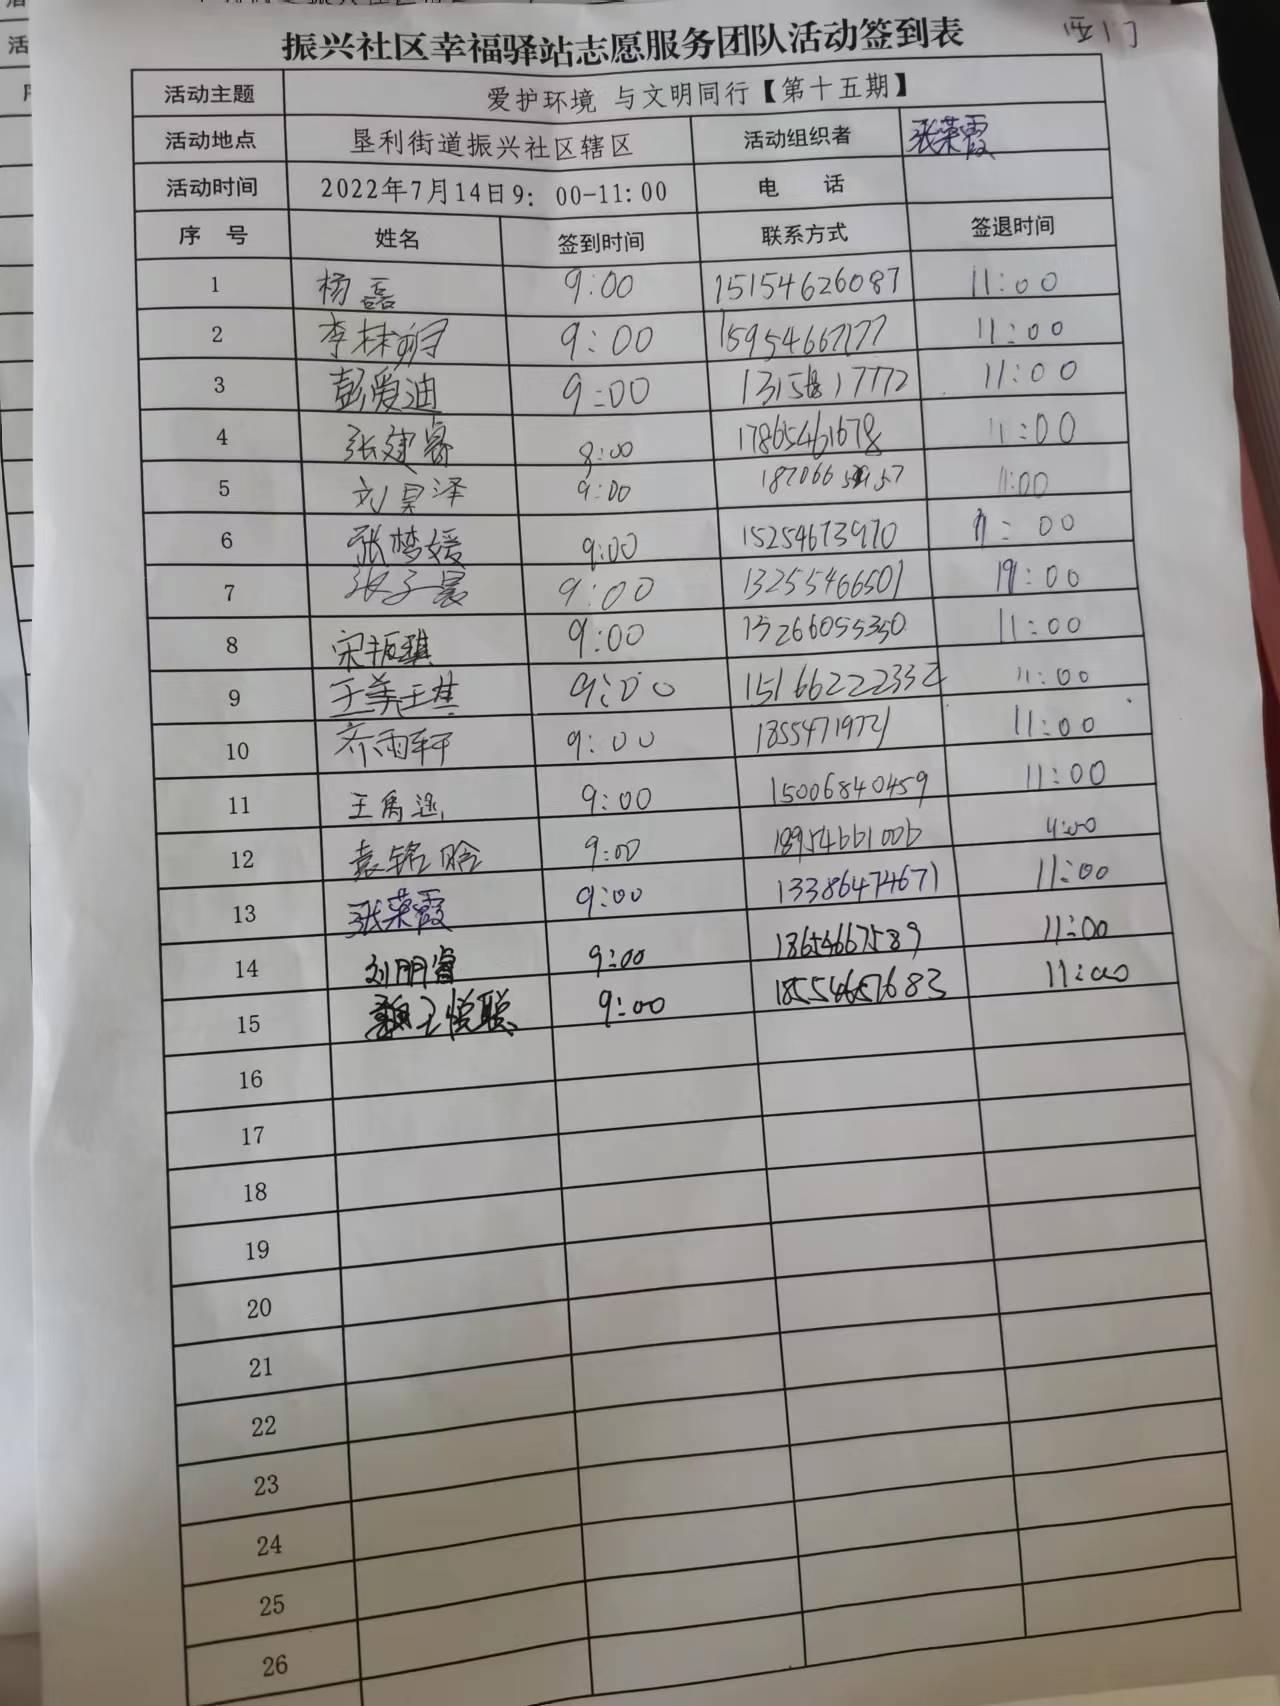 振兴社区幸福驿站志愿服务团队活动签到表 西门
活动主题 爱护环境 与文明同行【第十五期】
活动地点 垦利街道振兴社区辖区 活动组织者 张荣霞
活动时间 2022年7月14日9：00-11：00 电 话
序 号 姓名 签到时间 联系方式 签退时间
1 杨磊 9:00 15154626087 11:00
2 李林 9:00 15954667177 11:00
3 彭爱迪 9:00 11:00
4 张建睿 9:00 17865461678 11:00
5 刘昊泽 9:00 11:00
6 张梦媛 9:00 15254673970 11:00
7 张子晨 9:00 13255466501 11:00
8 宋振琪 9:00 15266055350 11:00
9 王美琪 9:00 15166222332 11:00
10 齐雨轩 9:00 18554719721 11:00
11 王禹涵 9:00 15006840459 11:00
12 袁铭晗 9:00 18954661006 11:00
13 张荣霞 9:00 13386474671 11:00
14 刘朋睿 9:00 18654667589 11:00
15 魏王悦联 9:00 18554657683 11:00
16
17
18
19
20
21
22
23
24
25
26